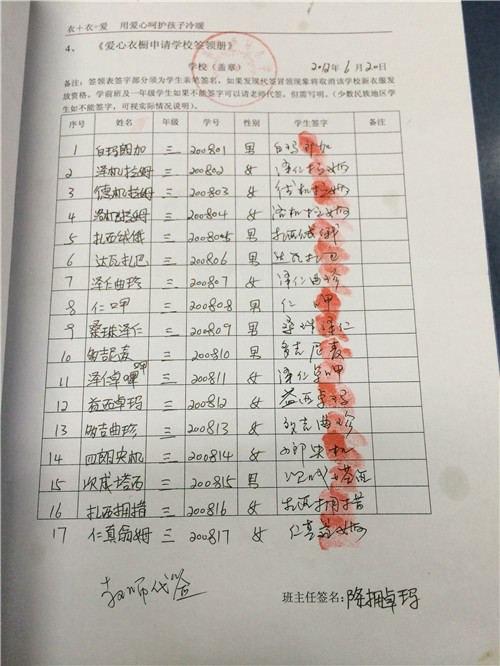 衣+衣=爱 用爱心呵护孩子冷暖
4、 《爱心衣橱申请学校签领册》
学校（盖章） 2012年6月20日
备注：签领表签字部分须为学生亲笔签名，如果发现代签冒领现象将取消该学校新衣服发
放资格。学前班及一年级学生如果不能签字可以请老师代签。但需写明。（少数民族地区学
生如不能签字，可视实际情况说明）。
序号 姓名 年级 学号 性别 学生签字 备注
1 白玛郎加 三 200801 男 白玛郎加
2 泽仁拉姆 三 200802 女 泽仁拉姆
3 德机拉姆 三 200803 女 德机拉姆
4 洛机拉姆 三 200804 女 洛机拉姆
5 扎西绒俄 三 200805 男 扎西绒俄
6 达瓦扎巴 三 200806 男 达瓦扎巴
7 泽仁曲珍 三 200807 女 泽仁曲珍
8 仁呷 三 200808 男 仁呷
9 桑珠泽仁 三 200809 男 桑珠泽仁
10 多吉尼麦 三 200810 男 多吉尼麦
11 泽仁卓呷 三 200811 女 泽仁卓呷
12 益西卓玛 三 200812 女 益西卓玛
13 多吉曲珍 三 200813 女 多吉曲珍
14 四朗央机 三 200814 女 四郎央机
15 次成塔西 三 200815 男
16 扎西拥措 三 200816 女 扎西拥措
17 仁真翁姆 三 200817 女 仁真翁姆
老师代签
班主任签名：降拥卓玛